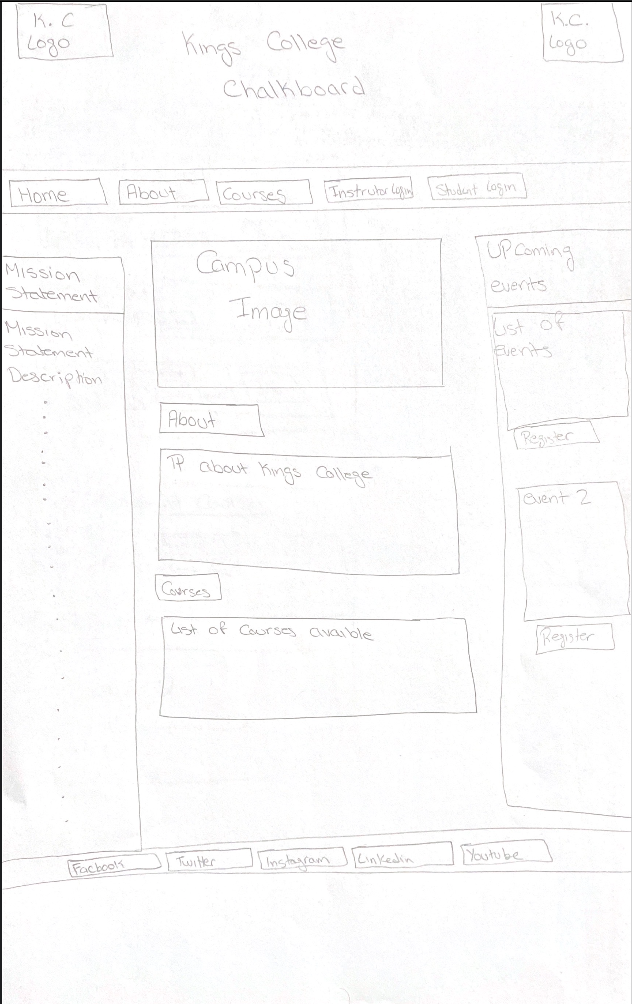 K. C
Logo
Kings College
Chalkboard
K.C.
Logo
Home
About
Courses
Instrutor Login
Student Login
Mission
Statement
Mission
Statement
Description
Campus
Image
About
TP about Kings College
Courses
List of Courses avaible
UPComing
events
List of
events
Register
event 2
Register
Facbook
Twitter
Instagram
Linkedin
Youtube